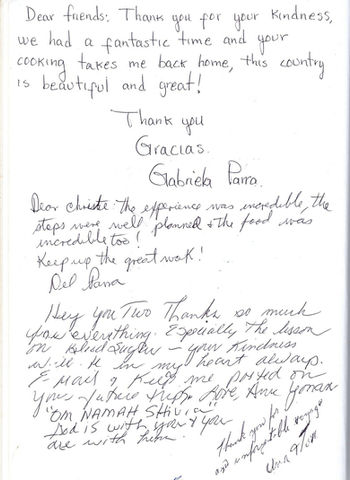 Dear friends: Thank you for your kindness,
we had a fantastic time and your
cooking takes me back home, this country
is beautiful and great!
Thank you
Gracias.
Gabriela Parra.
Dear Christe: the experience was incredible, the
steps were well planned & the food was
incredible too!
Keep up the great work!
Del Parra
Hey you Two Thanks so much
for everything. Especially the lesson
on Blood Sugar - your kindness
will be in my heart always.
E-mail & keep me posted on
your future trips. Love,
"OM NAMAH SHIVIA"
God is with you & you
are with him.
Thank you for
and unforgettable voyage